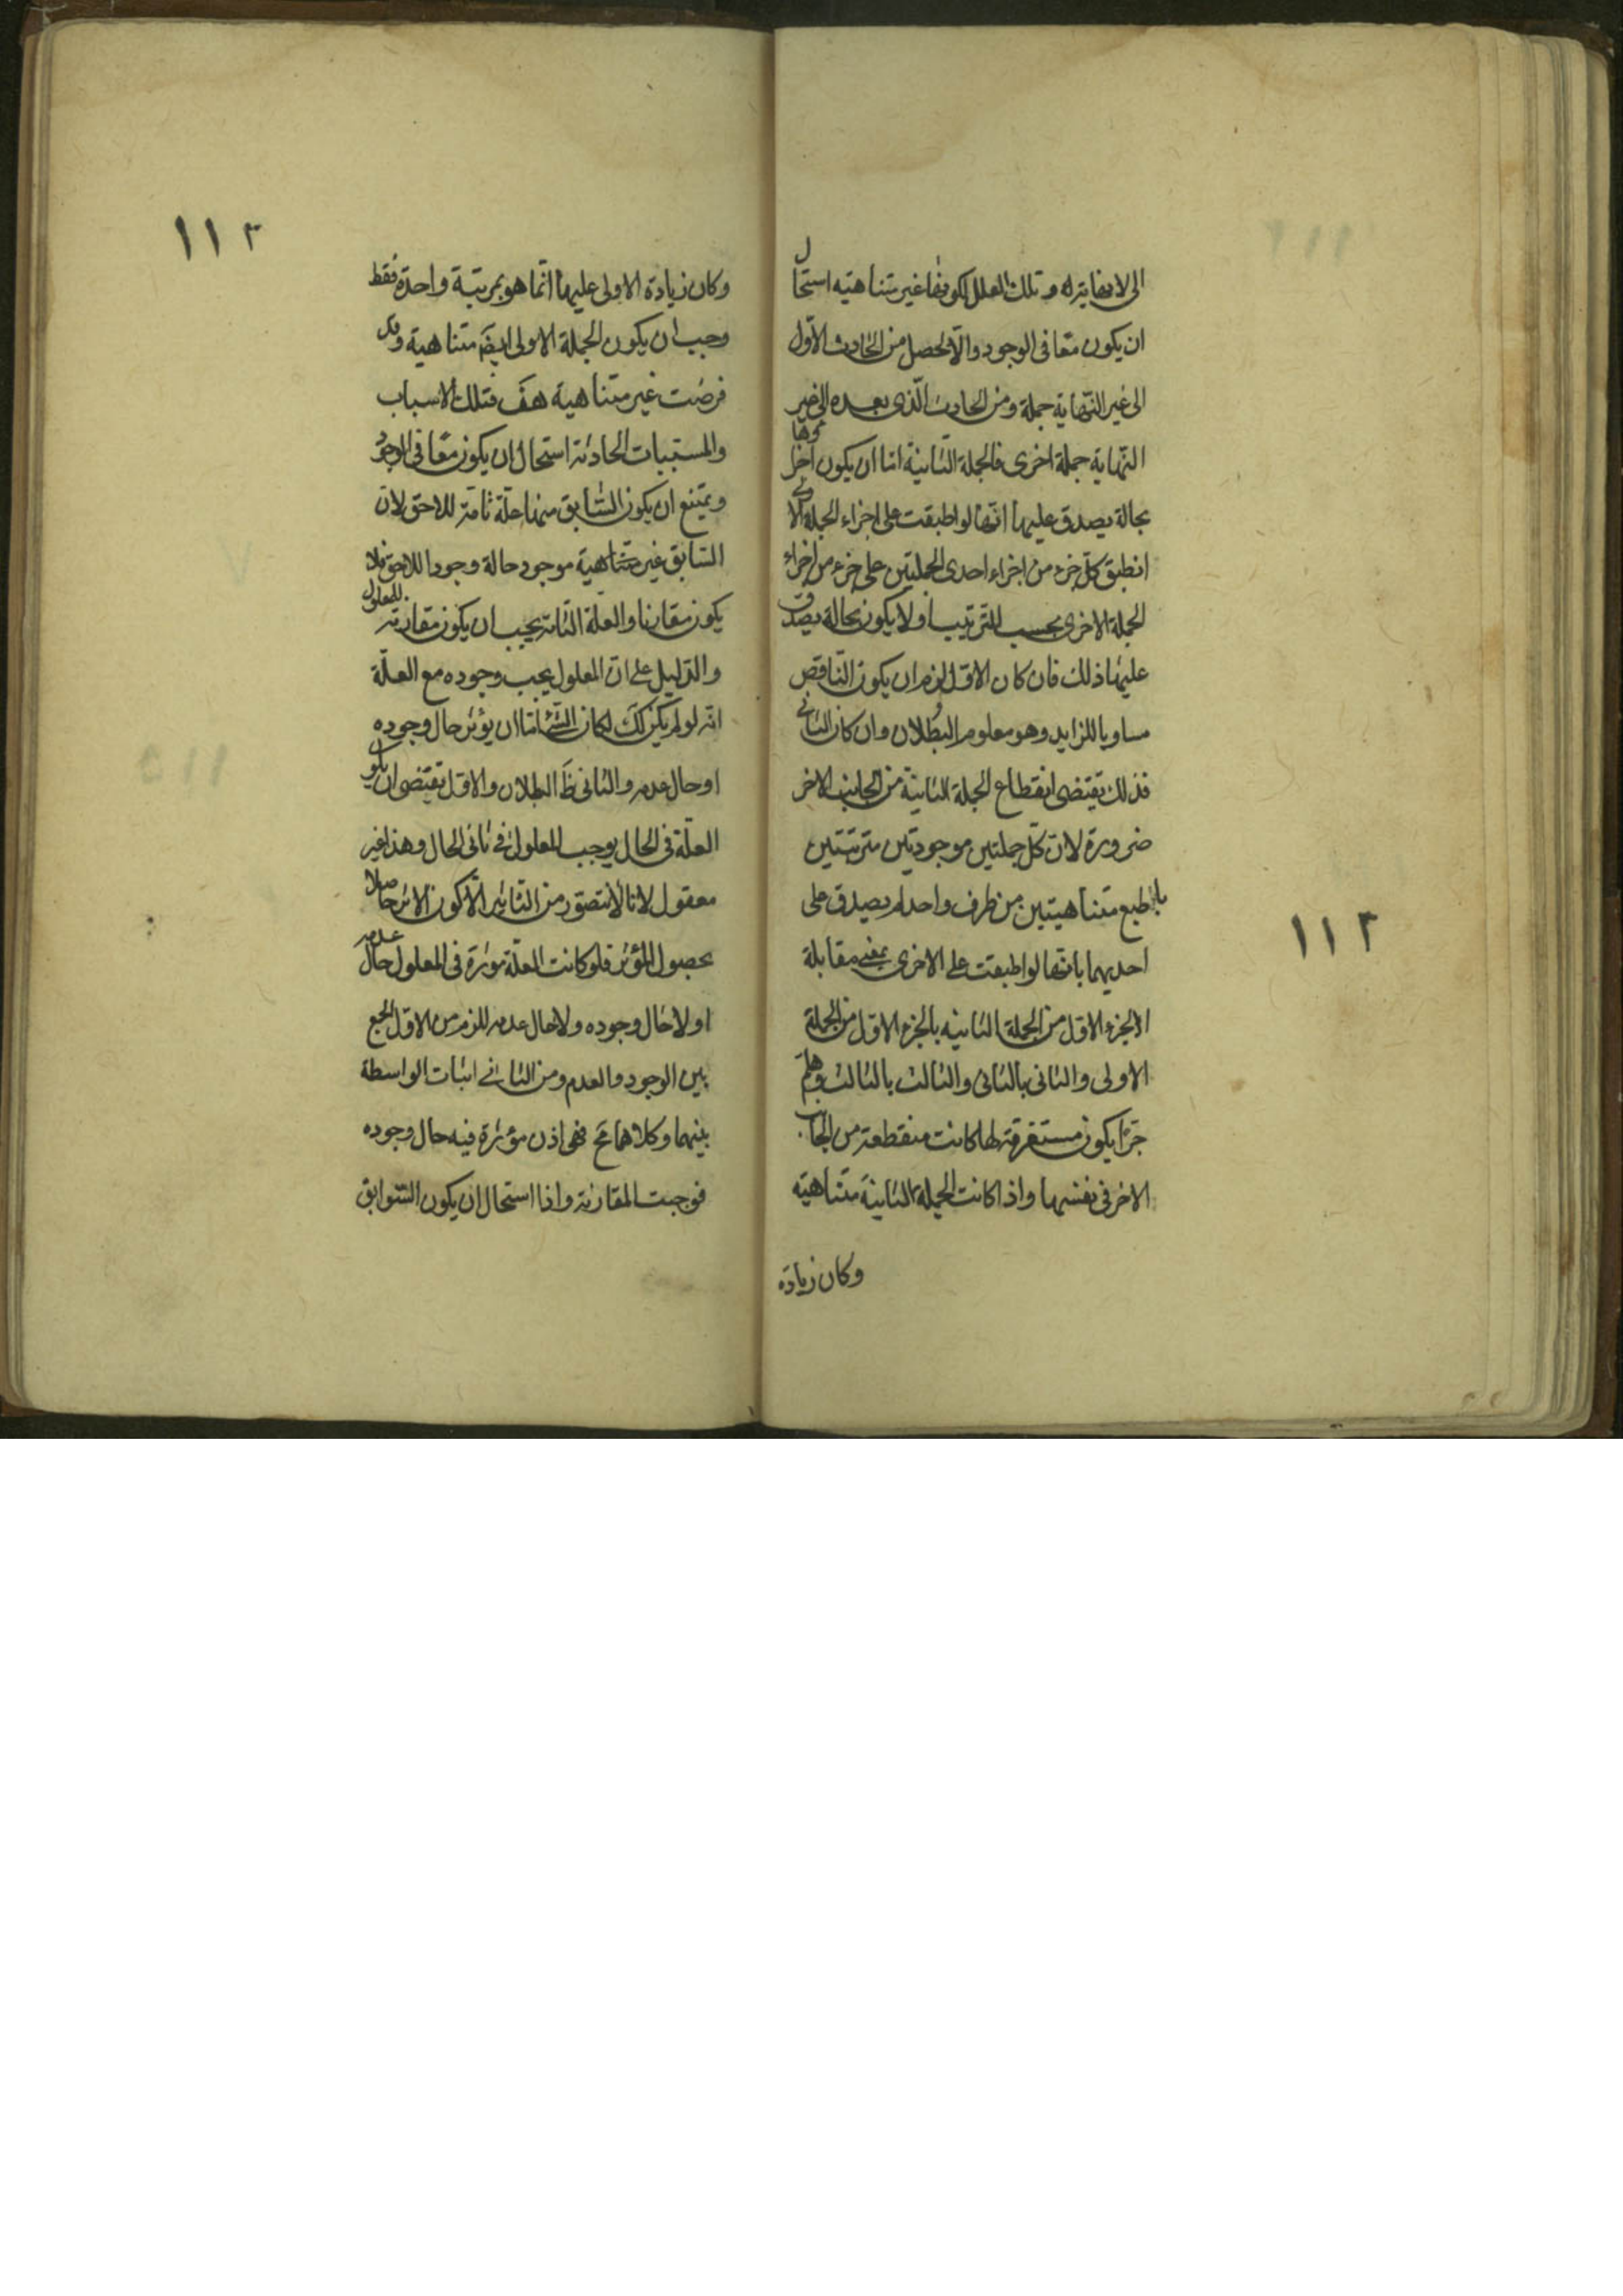 الى لا نهاية له وتلك العلل لكونها غير متناهيه استحال
ان يكون معا فى الوجود والا لحصل من الحادث الاول
الى غير النهاية جملة ومن الحادث الذى بعده الى غير
النهاية جملة اخرى فالجملة الثانية اما ان يكون اجزاؤها
بحالة يصدق عليها انها لو اطبقت على اجزاء الجملة الاولى
انطبق كل جزء من اجزاء احدى الجملتين على جزء من اجزاء
الجملة الاخرى بحسب الترتيب او لا يكون بحالة يصدق
عليها ذلك فان كان الاول لزم ان يكون الناقص
مساويا للزايد وهو معلوم البطلان وان كان الثانى
فذلك يقتضى انقطاع الجملة الثانية من الجانب الاخر
ضرورة لان كل جملتين موجودتين مترتبتين
بالطبع متناهيتين من طرف واحد لم يصدق على
احديهما بانها لو اطبقت على الاخرى بمعنى مقابلة
الجزء الاول من الجملة الثانيه بالجزء الاول من الجملة
الاولى والثانى بالثانى والثالث بالثالث وهلم
جرا يكون مستغرقة لها كانت منقطعة من الجانب
الاخر فى نفسها واذا كانت الجملة الثانية متناهيه
وكان زيادة
١١٢
١١٢
وكان زيادة الاولى عليها انما هو بمرتبة واحدة فقط
وجب ان يكون الجملة الاولى ايضَ متناهية وقد
فرضت غير متناهية هفَ فتلك الاسباب
والمسببات الحادثة استحال ان يكون معا فى الوجود
ويمتنع ان يكون السابق منها علة تامة للاحق لان
السابق غير متناهية موجود حالة وجود اللاحق فلا
يكون مقارنا والعلة التامة يجب ان يكون مقارنة للمعلول
والدليل على ان المعلول يجب وجوده مع العلة
انه لو لم يكن كك لكان الشئ اما ان يؤثر حال وجوده
او حال عدمه والثانى ظَ البطلان والاول يقتضى ان يكون
العلة فى الحال يوجب المعلول فى ثانى الحال وهذا غير
معقول لانا لا نتصور من التاثير الا كون الاثر حاصلا
بحصول المؤثر فلو كانت العلة مؤثرة فى المعلول حال عدمه
او لا حال وجوده ولا حال عدمه للزم من الاول الجمع
بين الوجود والعدم ومن الثانى اثبات الواسطة
بينهما وكلاهما مح فهى اذن مؤثرة فيه حال وجوده
فوجبت المقارنة واذا استحال ان يكون السوابق